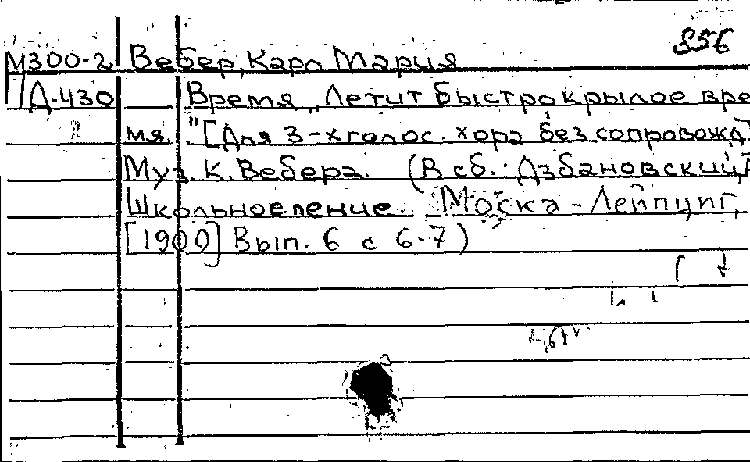 М300-2 Вебер, Карл Мария 556
Д-430 Время „Летит быстрокрылое вре
мя." [Для 3-х голос. хора без сопровожд.]
Муз. К. Вебера. (В сб.: Дзбановский,
Школьное пение. Москва - Лейпциг,
[1900] Вып. 6 с 6-7)